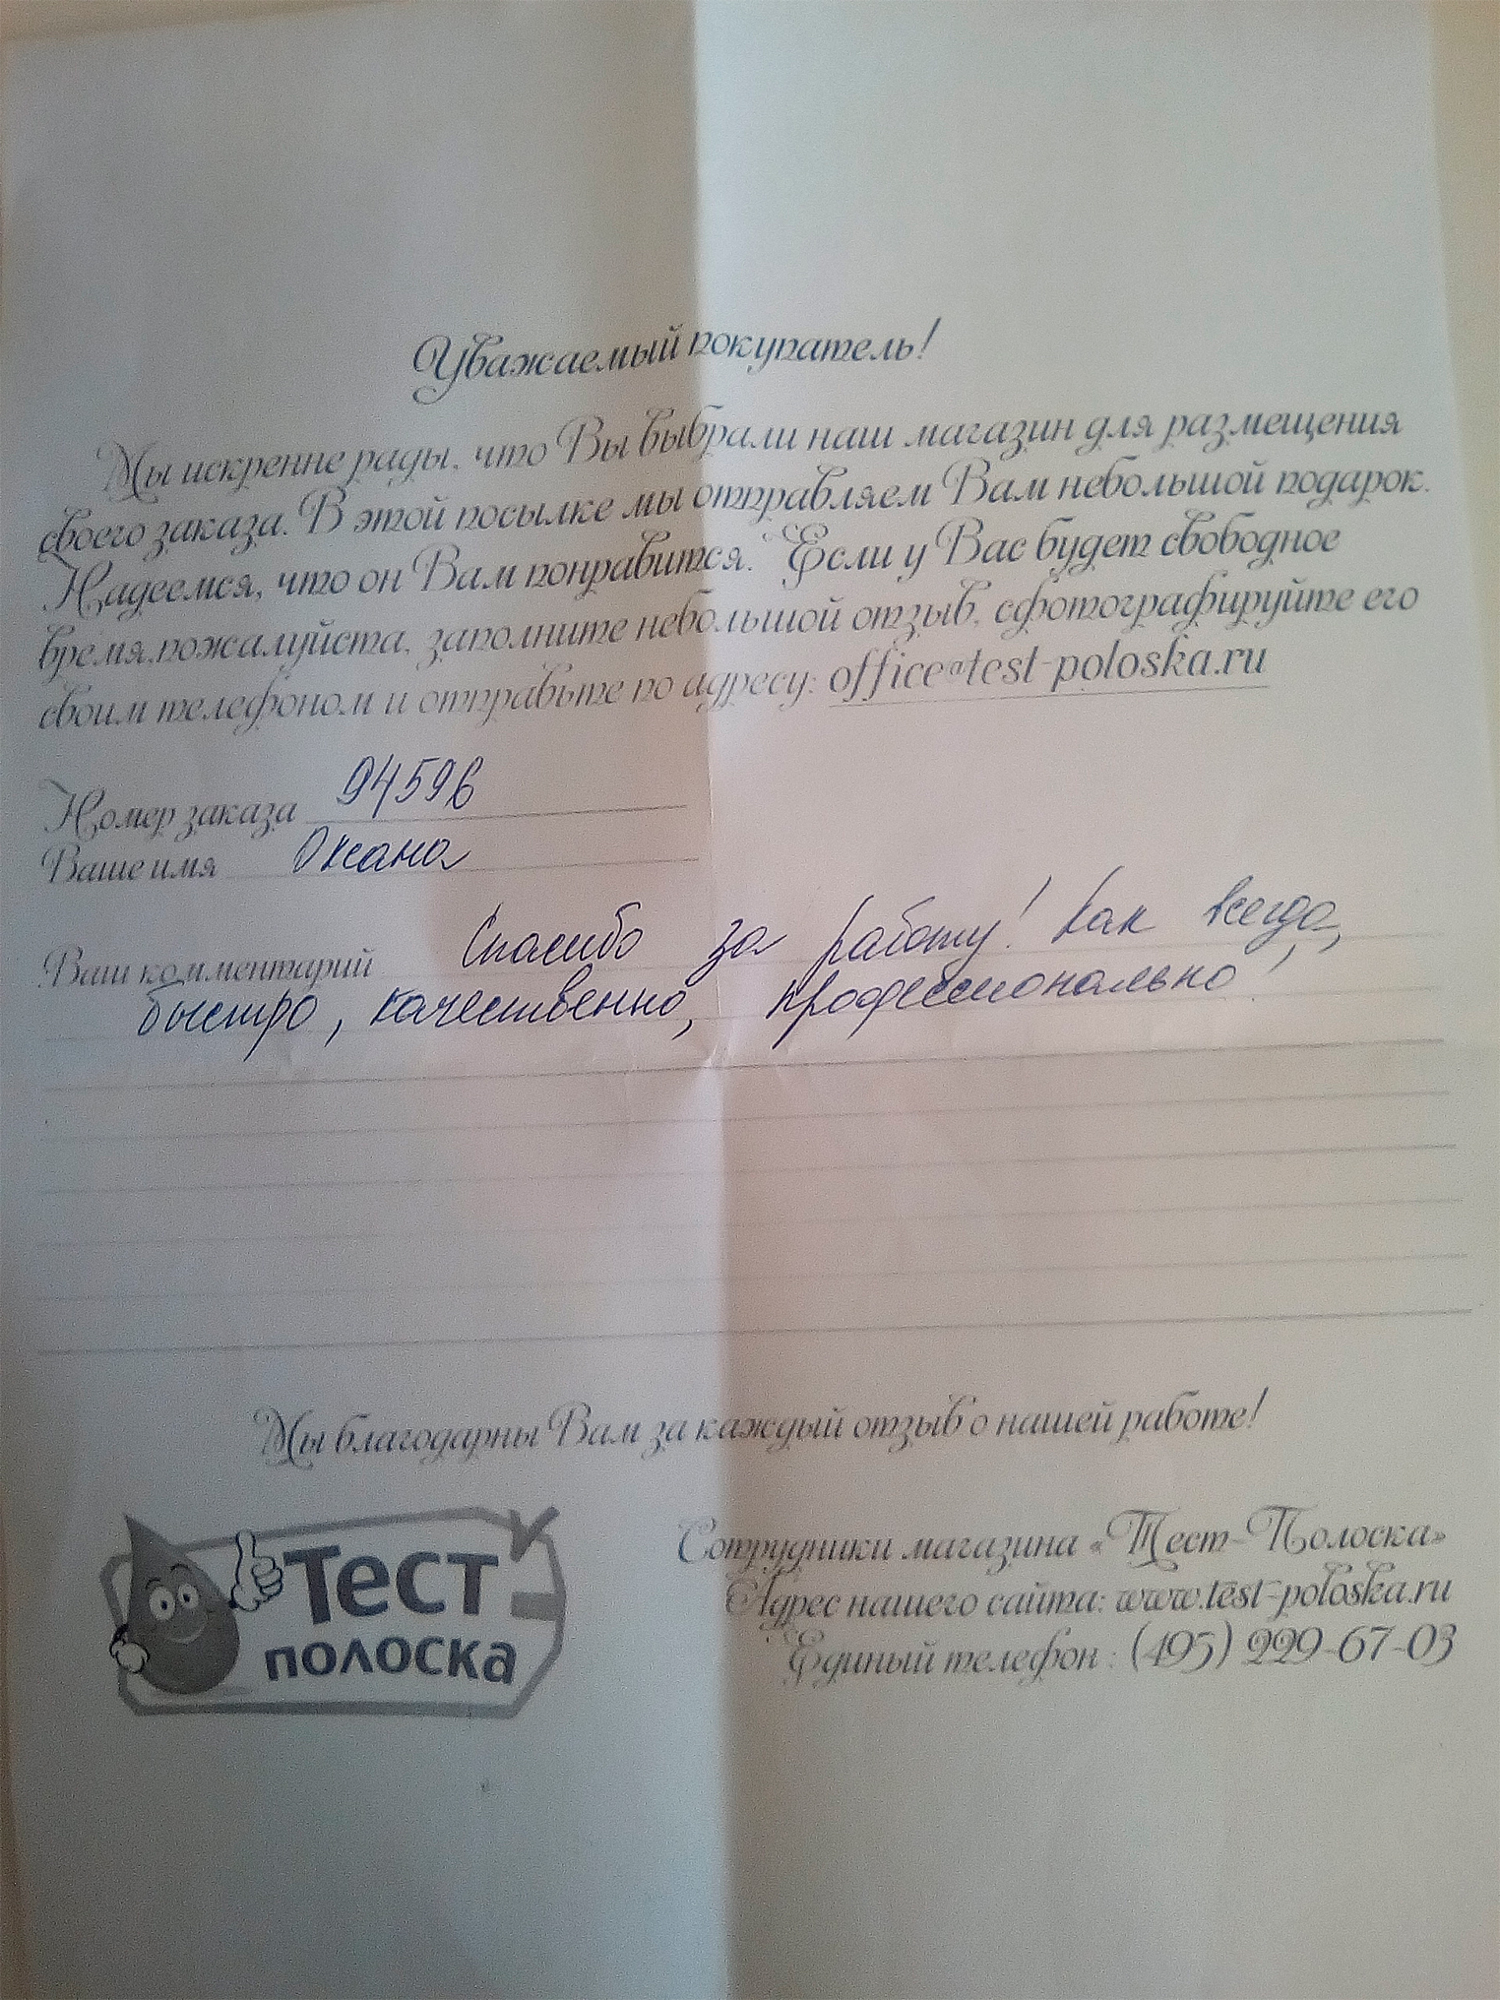 Уважаемый покупатель!
Мы искренне рады, что Вы выбрали наш магазин для размещения
своего заказа. В этой посылке мы отправляем Вам небольшой подарок.
Надеемся, что он Вам понравится. Если у Вас будет свободное
время,пожалуйста, заполните небольшой отзыв, сфотографируйте его
своим телефоном и отправьте по адресу: office@test-poloska.ru
Номер заказа 94596
Ваше имя Оксана
Ваш комментарий Спасибо за работу! Как всегда,
быстро, качественно, профессионально!
Мы благодарны Вам за каждый отзыв о нашей работе!
Тест
полоска
Сотрудники магазина «Тест-Полоска»
Адрес нашего сайта: www.test-poloska.ru
Единый телефон : (495) 229-67-03